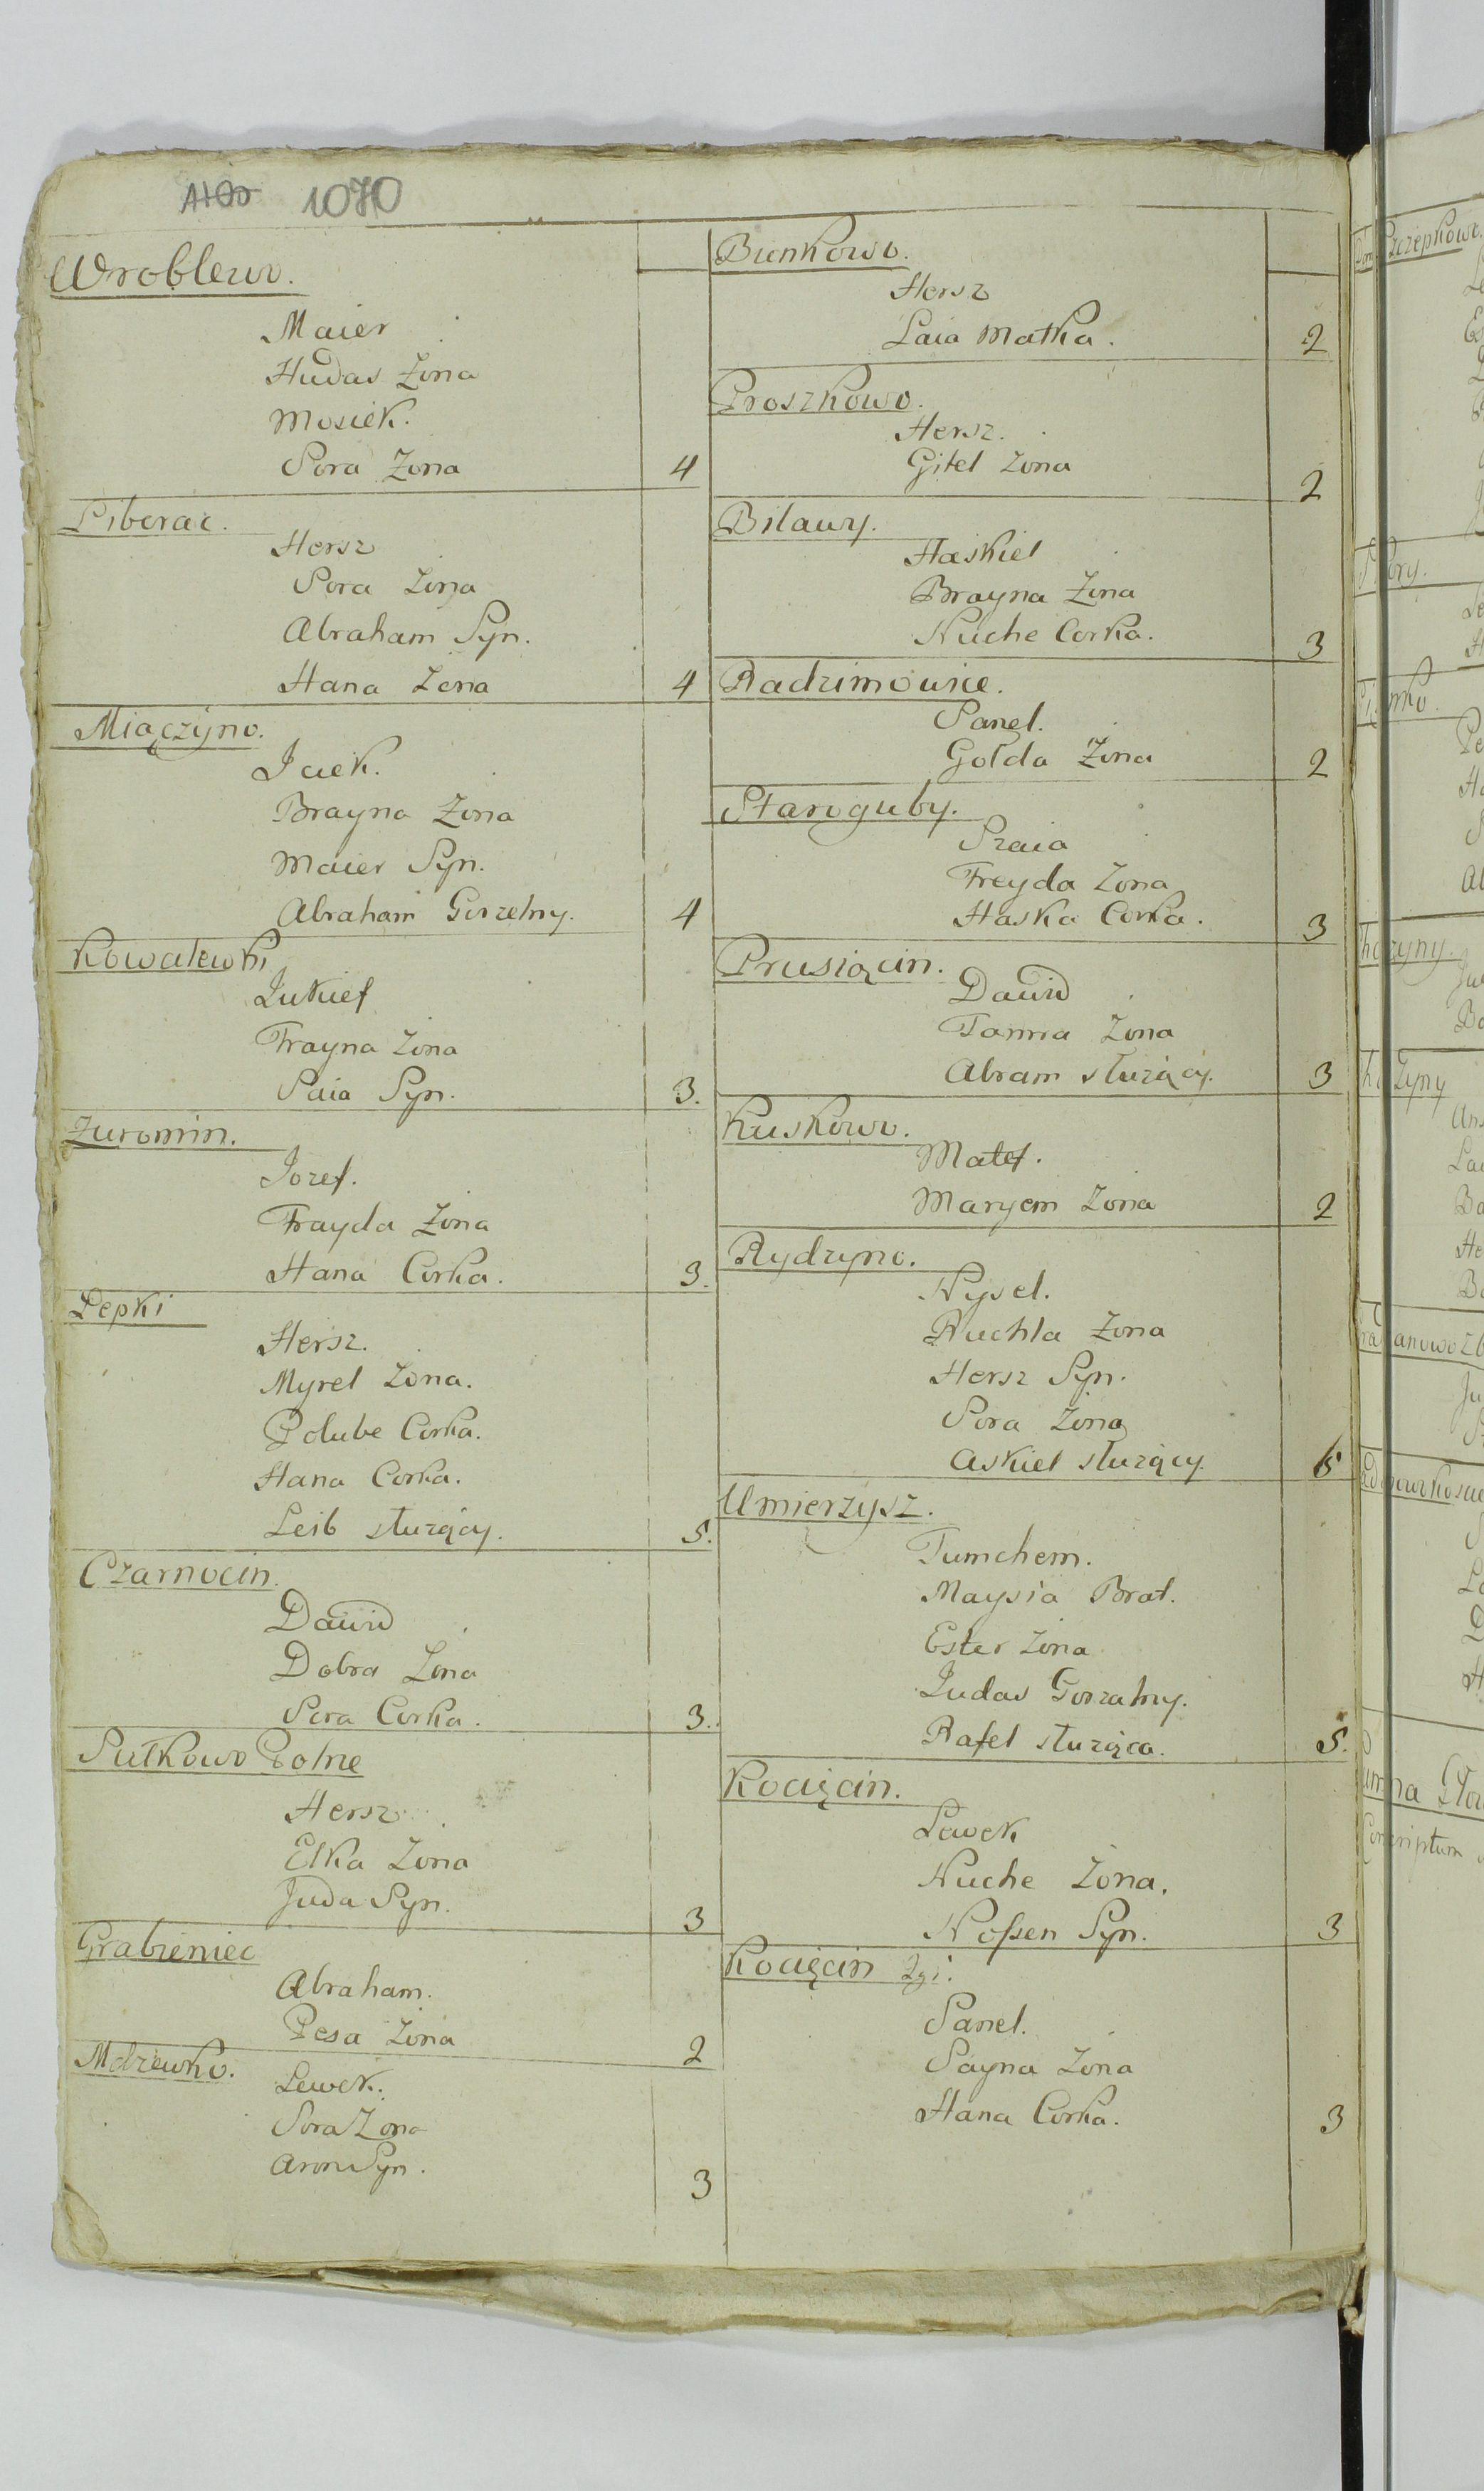 1070
Wroblewo.
Maier
Hudas Zona
Mosiek.
Sora Zona 4
Liberac.
Hersz
Sora Zona
Abraham Syn.
Hana Zona 4
Miączyno.
Jciek.
Brayna Zona
Maier Syn.
Abraham Gorzelny. 4
Kowalewki
Jukief
Frayna Zona
Saia Syn. 3.
Zuromin.
Jozef.
Frayda Zona
Hana Corka. 3.
Lepki
Hersz.
Myrel Zona.
Golube Corka.
Hana Corka.
Leib służący. 5.
Czarnocin.
Dawid
Dobra Zona
Sora Corka. 3.
Sułkowo Polne
Hersz
Elka Zona
Juda Syn. 3
Grabieniec
Abraham.
Pesa Zona 2
Mdzewko.
Lewek.
Sora Zona
Aron Syn. 3
Bienkowo.
Hersz
Laia Matka. 2
Proszkowo.
Hersz.
Gitel Zona 2
Bilawy.
Haskiel
Brayna Zona
Nuche Corka. 3
Radzimowice.
Sanel.
Gołda Zona 2
Staroguby.
Szaia
Freyda Zona
Haska Corka. 3
Prusięcin.
Dawid
Tamra Zona
Abram służący. 3
Kuskowo.
Matef.
Maryem Zona 2
Rydzyno.
Nysel.
Ruchla Zona
Hersz Syn.
Sora Zona
Askiel służący. 5
Umierzysz.
Tumchem.
Maysia Brat.
Ester Zona
Judas Gorzalny.
Rafel służąca. 5.
Kocięcin.
Lewek
Nuche Zona.
Noßen Syn. 3
Kocięcin 2gi.
Sanel.
Sayna Zona
Hana Corka. 3